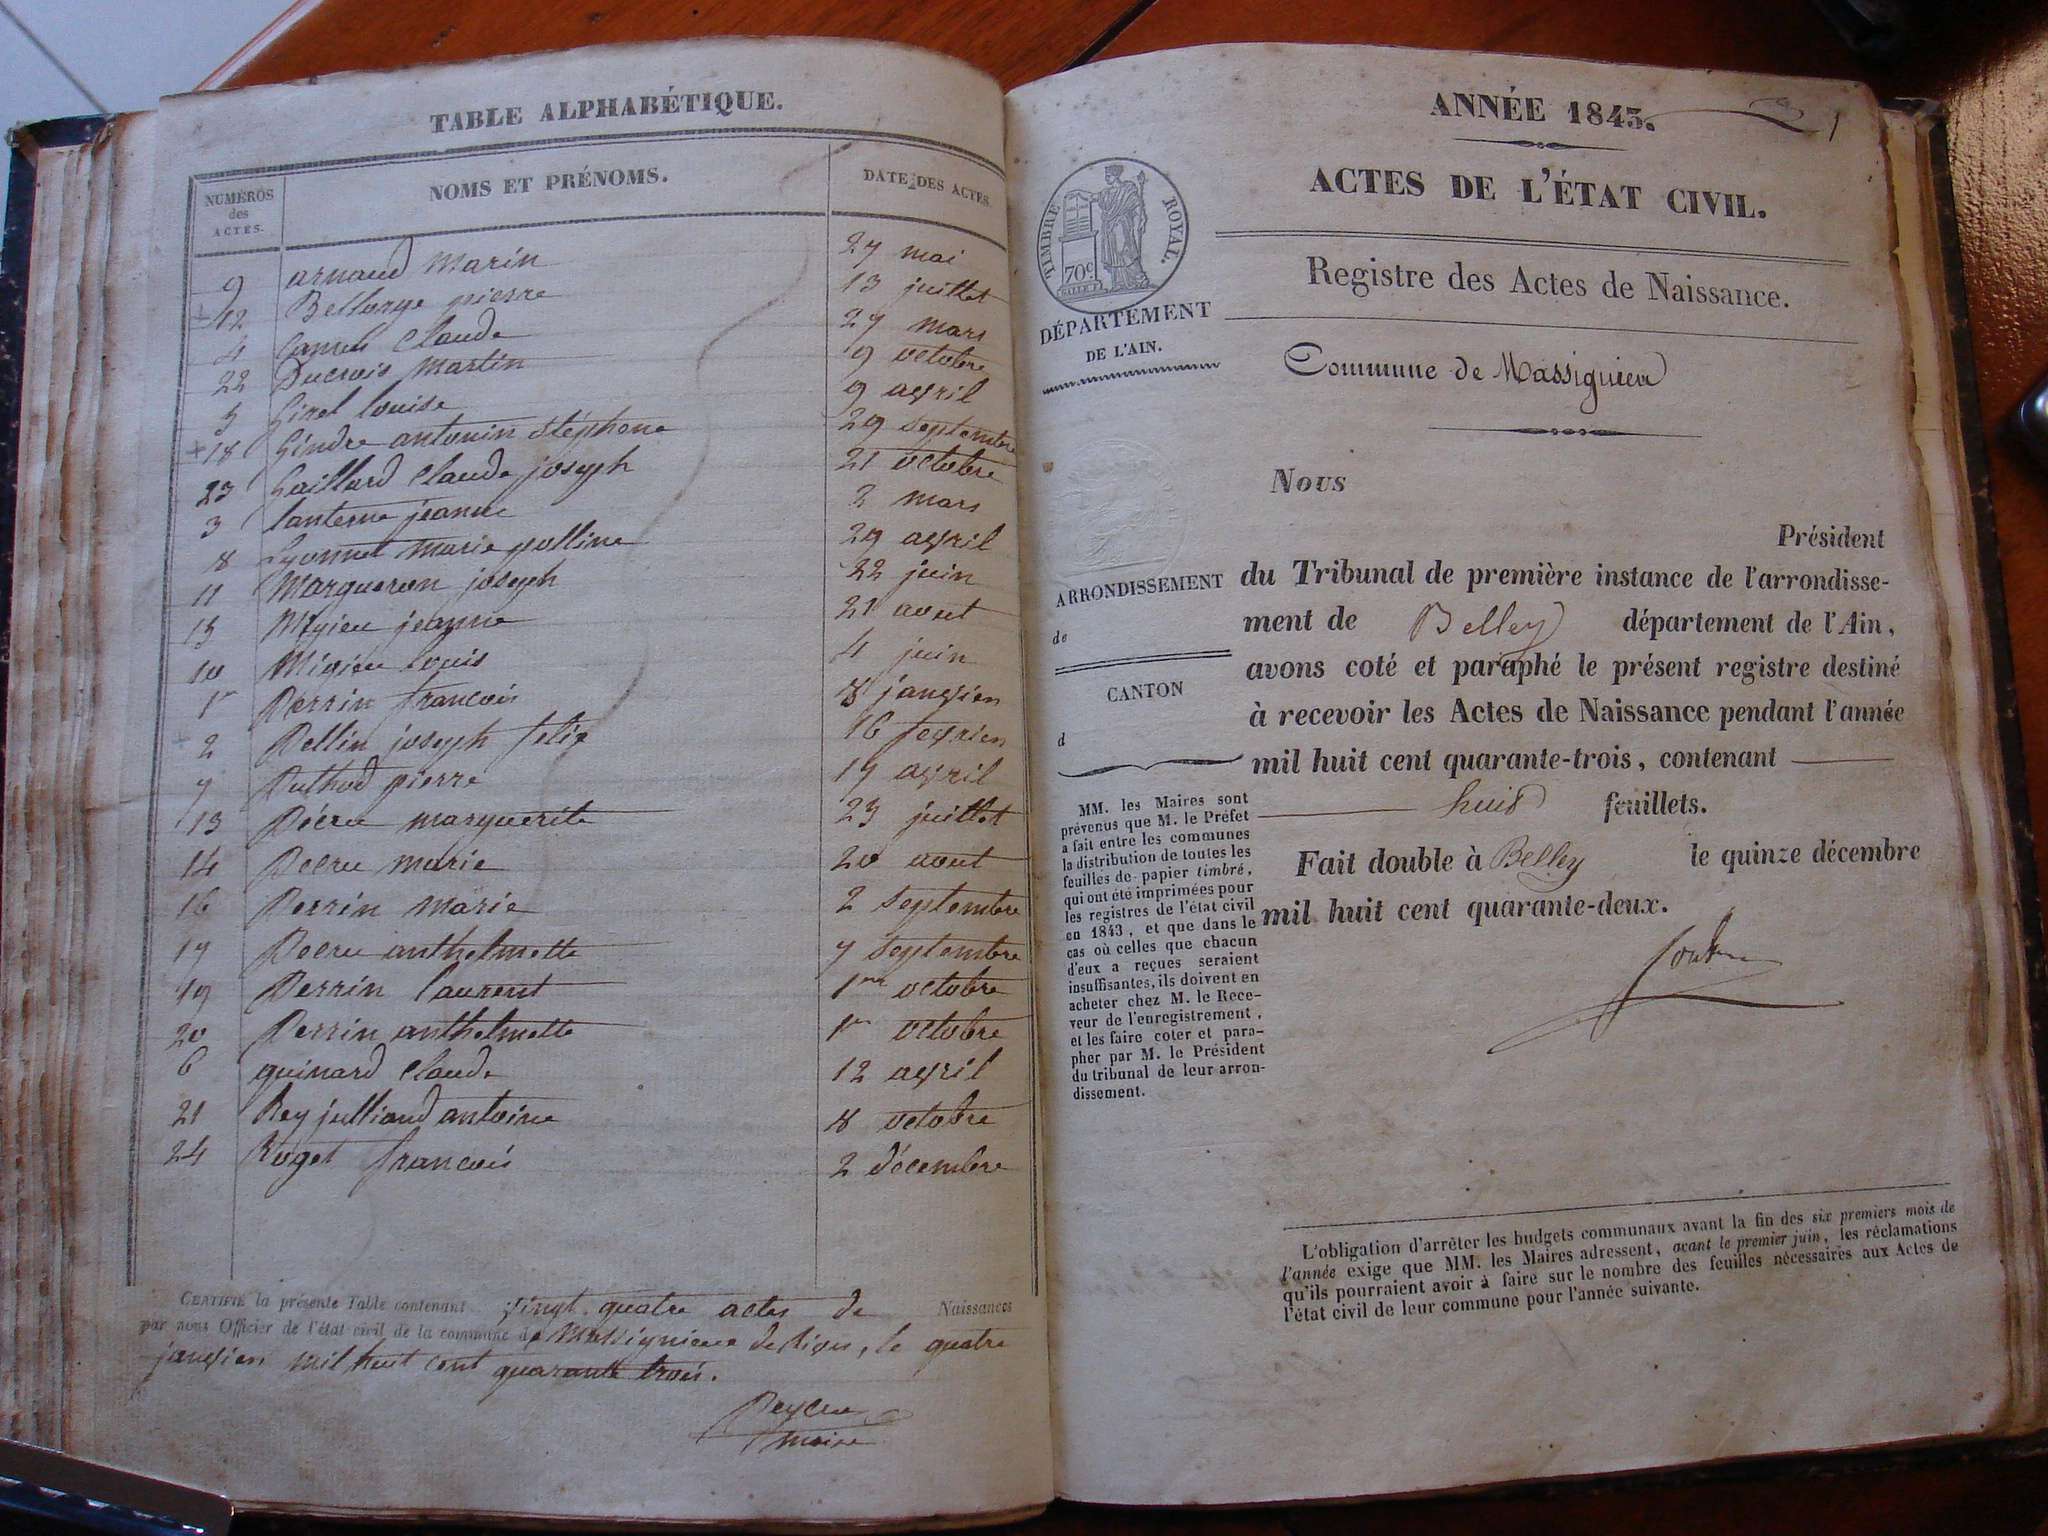 TABLE ALPHABÉTIQUE.
NUMÉROS des ACTES. NOMS ET PRÉNOMS. DATE DES ACTES.
9 arnaud marin 27 mai
12 Bellorge pierre 13 juillet
4 Claude 27 mars
22 Ducrois martin 9 octobre
5 Girel louise 9 avril
18 Gindre antonin Stéphone 29 septembre
23 Gaillard Claude joseph 21 octobre
3 lanterne jeanne 2 mars
8 Lyonnet marie polline 29 avril
11 Margueron joseph 22 juin
15 Migieu jeanne 21 aout
10 Migieu louis 4 juin
1er Perrin francois 8 janvier
2 Pellin joseph felix 16 fevrier
7 Puthod pierre 17 avril
13 Pécru marguerite 23 juillet
14 Pecru marie 20 aout
16 Perrin marie 2 septembre
17 Pecru anthelmette 7 septembre
19 Perrin laurent 1er octobre
20 Perrin anthelmette 1er octobre
6 quinard Claude 12 avril
21 Rey julliand antoine 8 octobre
24 Roget francois 2 décembre
CERTIFIÉ la présente Table contenant vingt quatre actes de Naissances
par nous Officier de l'état civil de la commune de Massignieu de Rives, le quatre
janvier mil huit cent quarante trois.
Peycru
maire
ANNÉE 1843. 1
ACTES DE L'ÉTAT CIVIL.
TIMBRE ROYAL.
70c
Registre des Actes de Naissance.
DÉPARTEMENT
DE L'AIN.
Commune de Massignieu
Nous
Président
du Tribunal de première instance de l'arrondisse-
ment de Belley département de l'Ain,
avons coté et paraphé le présent registre destiné
à recevoir les Actes de Naissance pendant l'année
mil huit cent quarante-trois, contenant
huit feuillets.
Fait double à Belley le quinze décembre
mil huit cent quarante-deux.
ARRONDISSEMENT
de
CANTON
d
MM. les Maires sont
prévenus que M. le Préfet
a fait entre les communes
la distribution de toutes les
feuilles de papier timbré,
qui ont été imprimées pour
les registres de l'état civil
en 1843, et que dans le
cas où celles que chacun
d'eux a reçues seraient
insuffisantes, ils doivent en
acheter chez M. le Rece-
veur de l'enregistrement,
et les faire coter et para-
pher par M. le Président
du tribunal de leur arron-
dissement.
L'obligation d'arrêter les budgets communaux avant la fin des six premiers mois de
l'année exige que MM. les Maires adressent, avant le premier juin, les réclamations
qu'ils pourraient avoir à faire sur le nombre des feuilles nécessaires aux Actes de
l'état civil de leur commune pour l'année suivante.